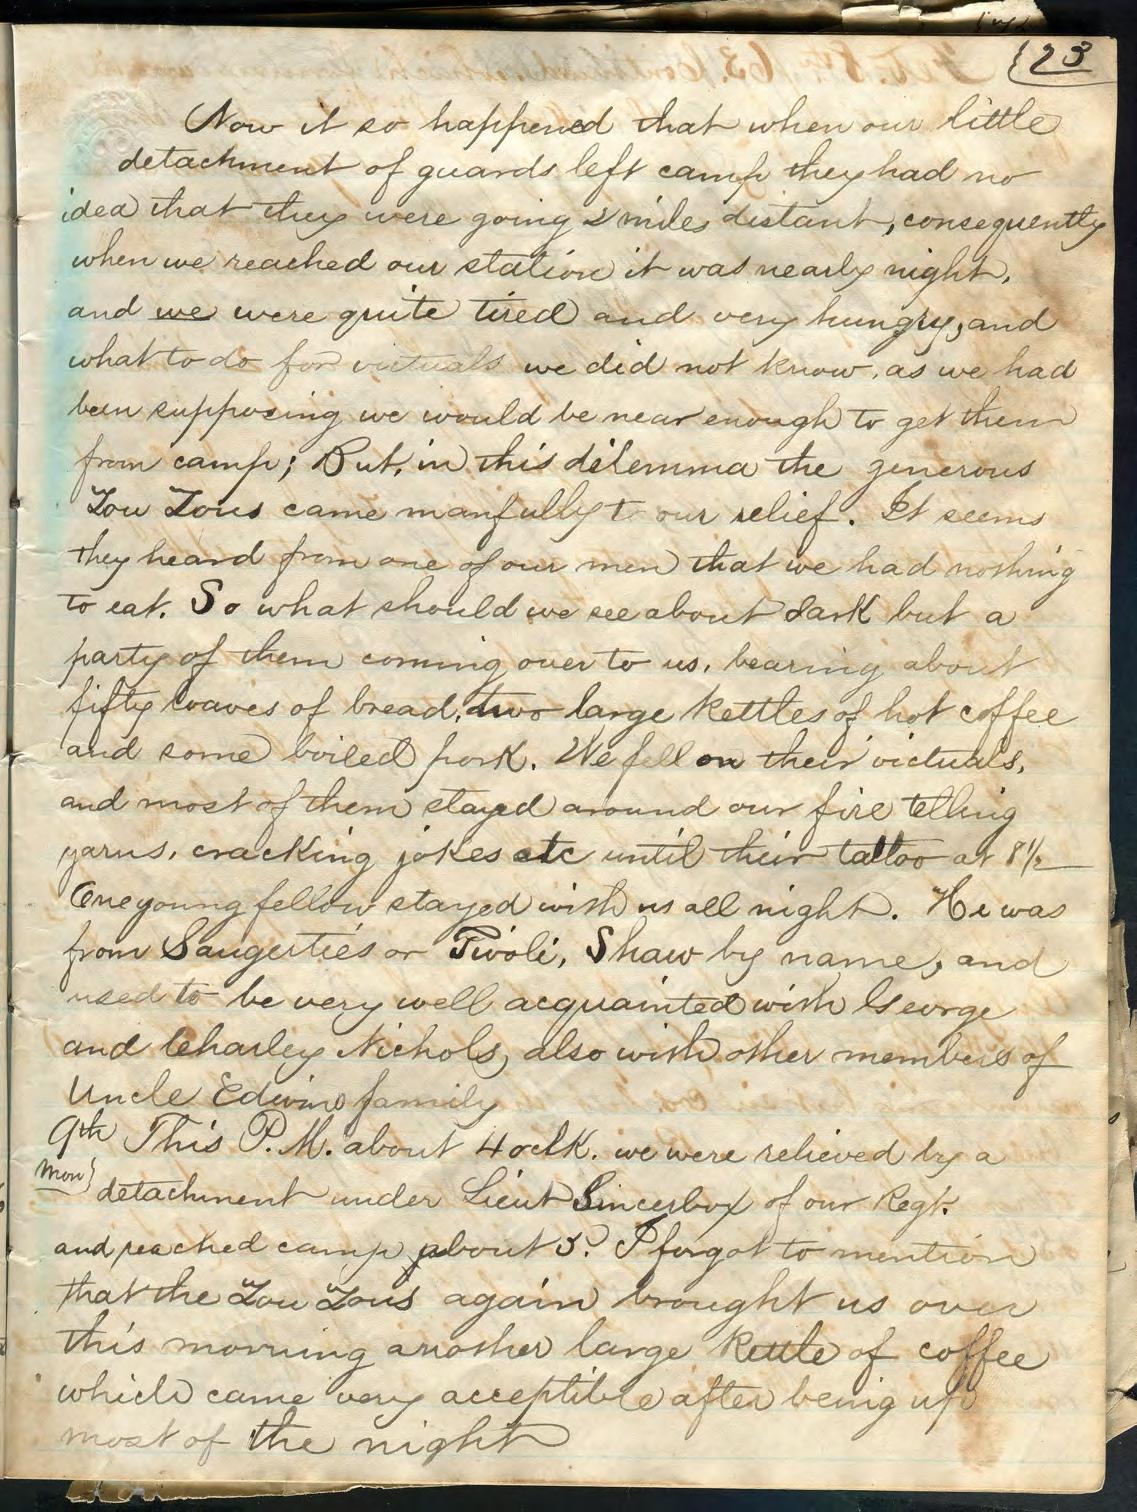 23
Now it so happened that when our little
detachment of guards left camp they had no
idea that they were going 2 miles distant, consequently
when we reached our station it was nearly night,
and we were quite tired and very hungry, and
what to do for victuals we did not know, as we had
been supposing we would be near enough to get them
from camp; But, in this dilemma the generous
Zou Zous came manfully to our relief. It seems
they heard from one of our men that we had nothing
to eat. So what should we see about dark but a
party of them coming over to us, bearing about
fifty loaves of bread, two large kettles of hot coffee
and some boiled pork. We fell on their victuals,
and most of them stayed around our fire telling
yarns, cracking jokes etc until their tattoo at 8 1/2
One young fellow stayed with us all night. He was
from Saugerties or Tivoli, Shaw by name, and
used to be very well acquainted with George
and Charley Nichols, also with other members of
Uncle Edwins family
9th This P.M. about 4 oclk. we were relieved by a
Mon} detachment under Lieut Sincerbox of our Regt.
and reached camp about 5. I forgot to mention
that the Zou Zous again brought us over
this morning another large kettle of coffee
which came very acceptible after being up
most of the night